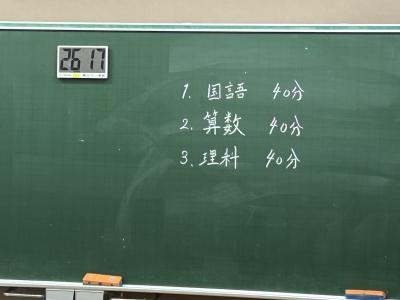 26 17
1. 国語 40分
2. 算数 40分
3. 理科 40分